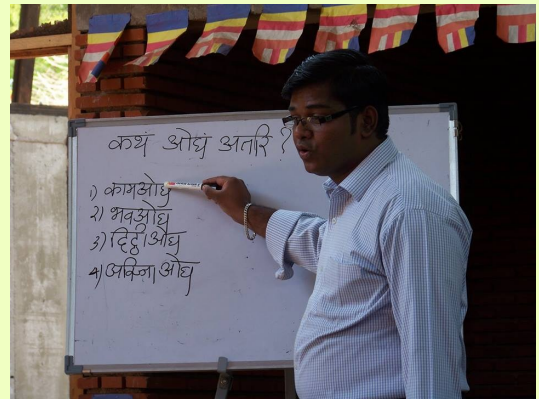 कथं ओघं अतरि ?
१) कामओघ
२) भवओघ
३) दिट्ठीओघ
४) अविज्जा ओघ